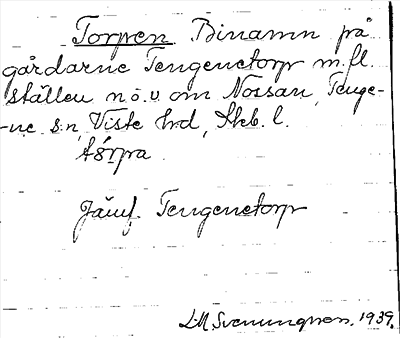 Torpen Binamn på
gårdarne Tengenetorp m.fl.
ställen n.ö.v. om Nossan, Tenge-
-ne s:n, Viste hrd, Skb. l.
tórpa
Jämf. Tengenetorp
L.M. Svenungsson. 1939.